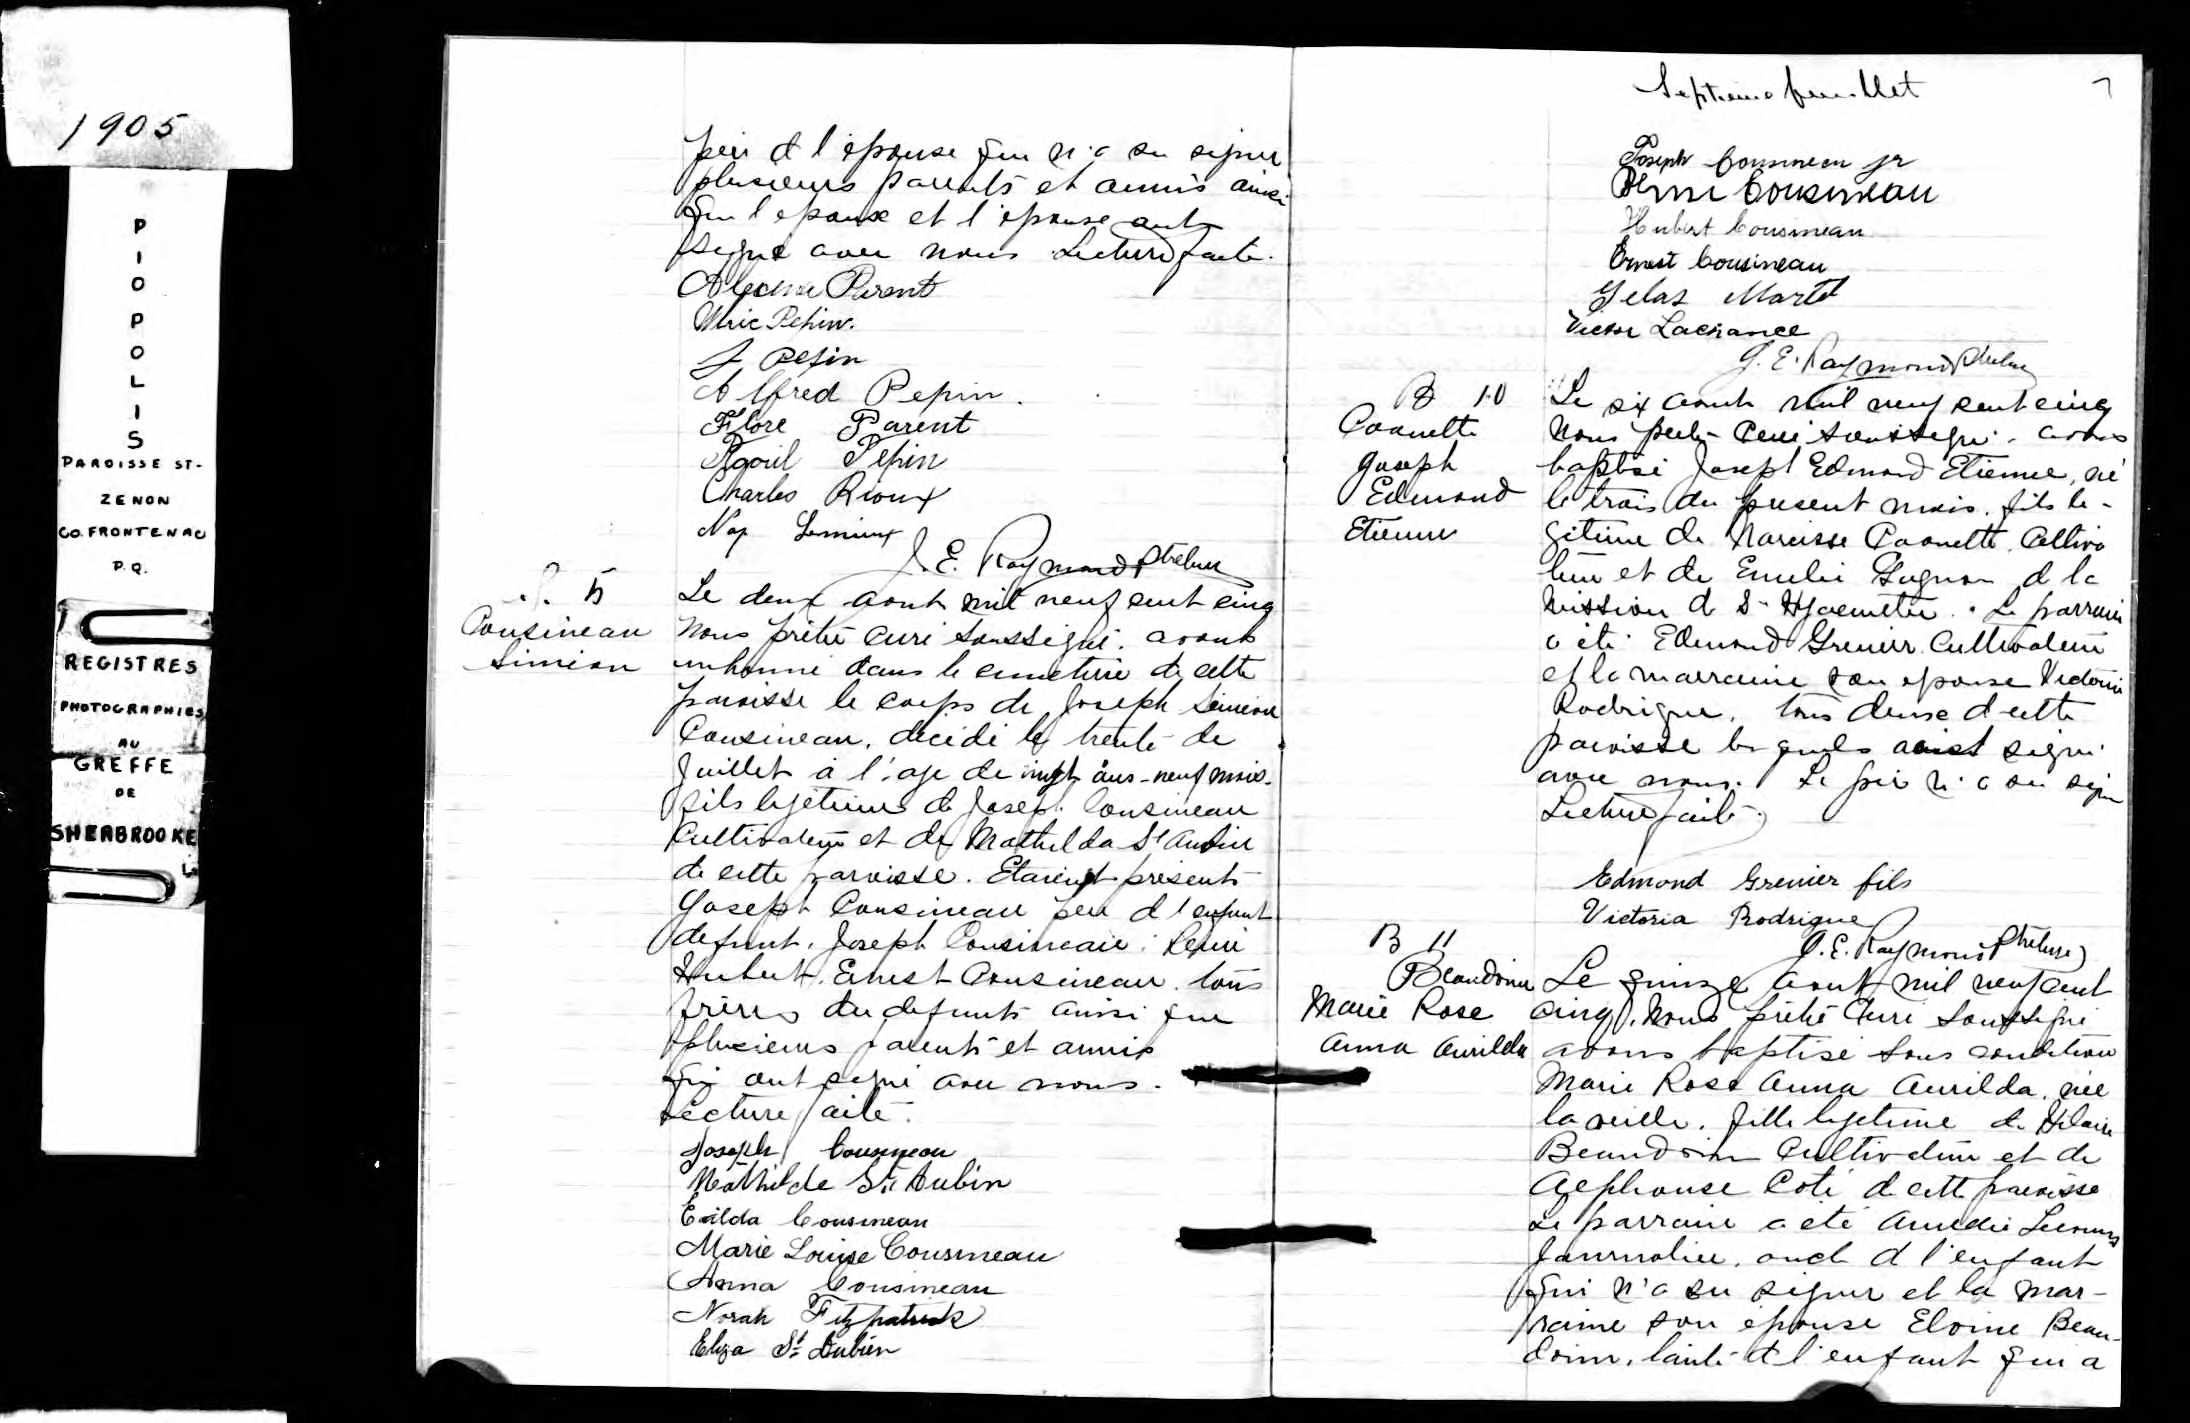 1905
PIOPOLIS
PAROISSE ST-
ZENON
CO. FRONTENAC
P.Q.
REGISTRES
PHOTOGRAPHIES
AU
GREFFE
DE
SHERBROOKE
père d l'épouse qui n'a su signer
plusieurs parents et amis ainsi
que l'epoux et l'épouse ont
signé avec nous Lecture faite.
Parent
Ulric Pepin.
J Pepin
Alfred Pepin.
Flore Parent
Pepin
Charles Rioux
Nap Lemieux
J. E. Raymond Ptre Curé
S. 5
Cousineau
Siméon
Le deux aout mil neuf cent cinq
Nous prêtre curé soussigné. avons
inhumé dans le cimetière de cette
paroisse le corps de Joseph Siméon
Cousineau. décédé le trente de
Juillet à l'age de vingt ans-neuf mois.
fils légitime de Joseph Cousineau
Cultivateur et de Mathilda St Aubin
de cette paroisse. Etaient présents
Joseph Cousineau père d l'enfant
defunt. Joseph Cousineau. Remi
Hubert. Ernest Cousineau. tous
frères du defunt ainsi que
plusieurs parents et amis
qui ont signé avec nous.
Lecture faite.
Joseph Cousineau
Mathilde St Aubin
Exilda Cousineau
Marie Louise Cousineau
Anna Cousineau
Norah Fitzpatrick
Eliza St Aubin
Septieme feuillet
7
Joseph Cousineau jr
Remi Cousineau
Hubert Cousineau
Ernest Cousineau
Gelas Martel
Victor Lachance
J. E. Raymond Ptre Curé
B 10
Paquette
Joseph
Edmond
Etienne
Le six aout mil neuf cent cinq
Nous prêtre Curé soussigné. avons
baptisé Joseph Edmond Etienne, né
le trois du present mois. fils lé-
gitime de Narcisse Paquette. Cultiva
teur et de Emelie Gagnon d la
Mission d St Hyacinthe. Le parrain
a été Edmond Grenier Cultivateur
et la marraine son epouse Victoria
Rodrigue. tous deux d cette
paroisse lesquels ont signé
avec nous. Le père n'a su signer
Lecture faite.
Edmond Grenier fils
Victoria Rodrigue
J. E. Raymond Ptre Curé
B 11
Beaudoin
Marie Rose
Anna Aurilda
Le quinze aout mil neuf cent
cinq. Nous prêtre Curé Soussigné
avons baptisé sous condition
Marie Rose Anna Aurilda, née
la veille. fille légitime de Hilaire
Beaudoin Cultivateur et de
Alphonse Coté d cette paroisse
Le parrain a été Amedée
Journalier, oncle d l'enfant
qui n'a su signer et la mar-
raine son épouse Eloïse Beau-
doin. tante d l'enfant qui a